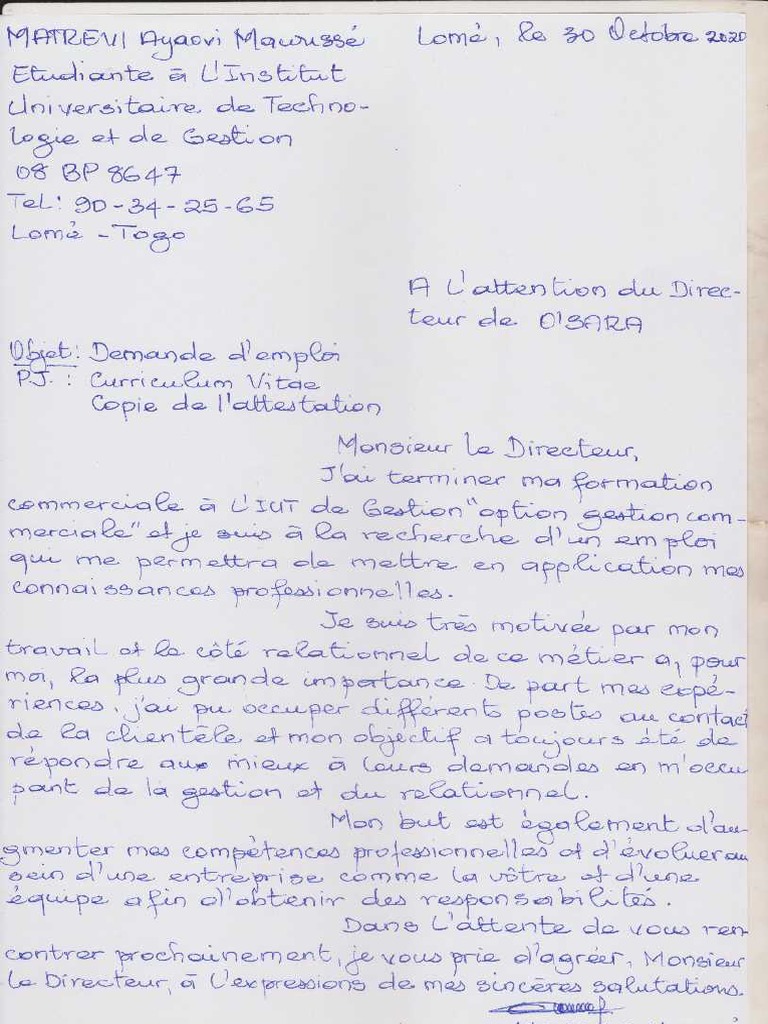 MATREVI Ayaovi Mawussé Lomé, le 30 Octobre 2020
Etudiante à L'Institut
Universitaire de Techno-
logie et de Gestion
08 BP 8647
Tel: 90-34-25-65
Lomé - Togo
A L'attention du Direc-
teur de O'SARA
Objet: Demande d'emploi
P.J. : Curriculum Vitae
Copie de l'attestation
Monsieur le Directeur,
J'ai terminer ma formation
commerciale à L'IUT de Gestion "option gestion com-
merciale" et je suis à la recherche d'un emploi
qui me permettra de mettre en application mes
connaissances professionnelles.
Je suis très motivée par mon
travail et le côté relationnel de ce métier a, pour
moi, la plus grande importance. De part mes expé-
riences, j'ai pu occuper différents postes au contact
de la clientèle et mon objectif a toujours été de
répondre au mieux à leurs demandes en m'occu
pant de la gestion et du relationnel.
Mon but est également d'au-
gmenter mes compétences professionnelles et d'évoluer au
sein d'une entreprise comme la vôtre et d'une
équipe afin d'obtenir des responsabilités.
Dans L'attente de vous ren-
contrer prochainement, je vous prie d'agréer, Monsieur
le Directeur, à L'expressions de mes sincères salutations.